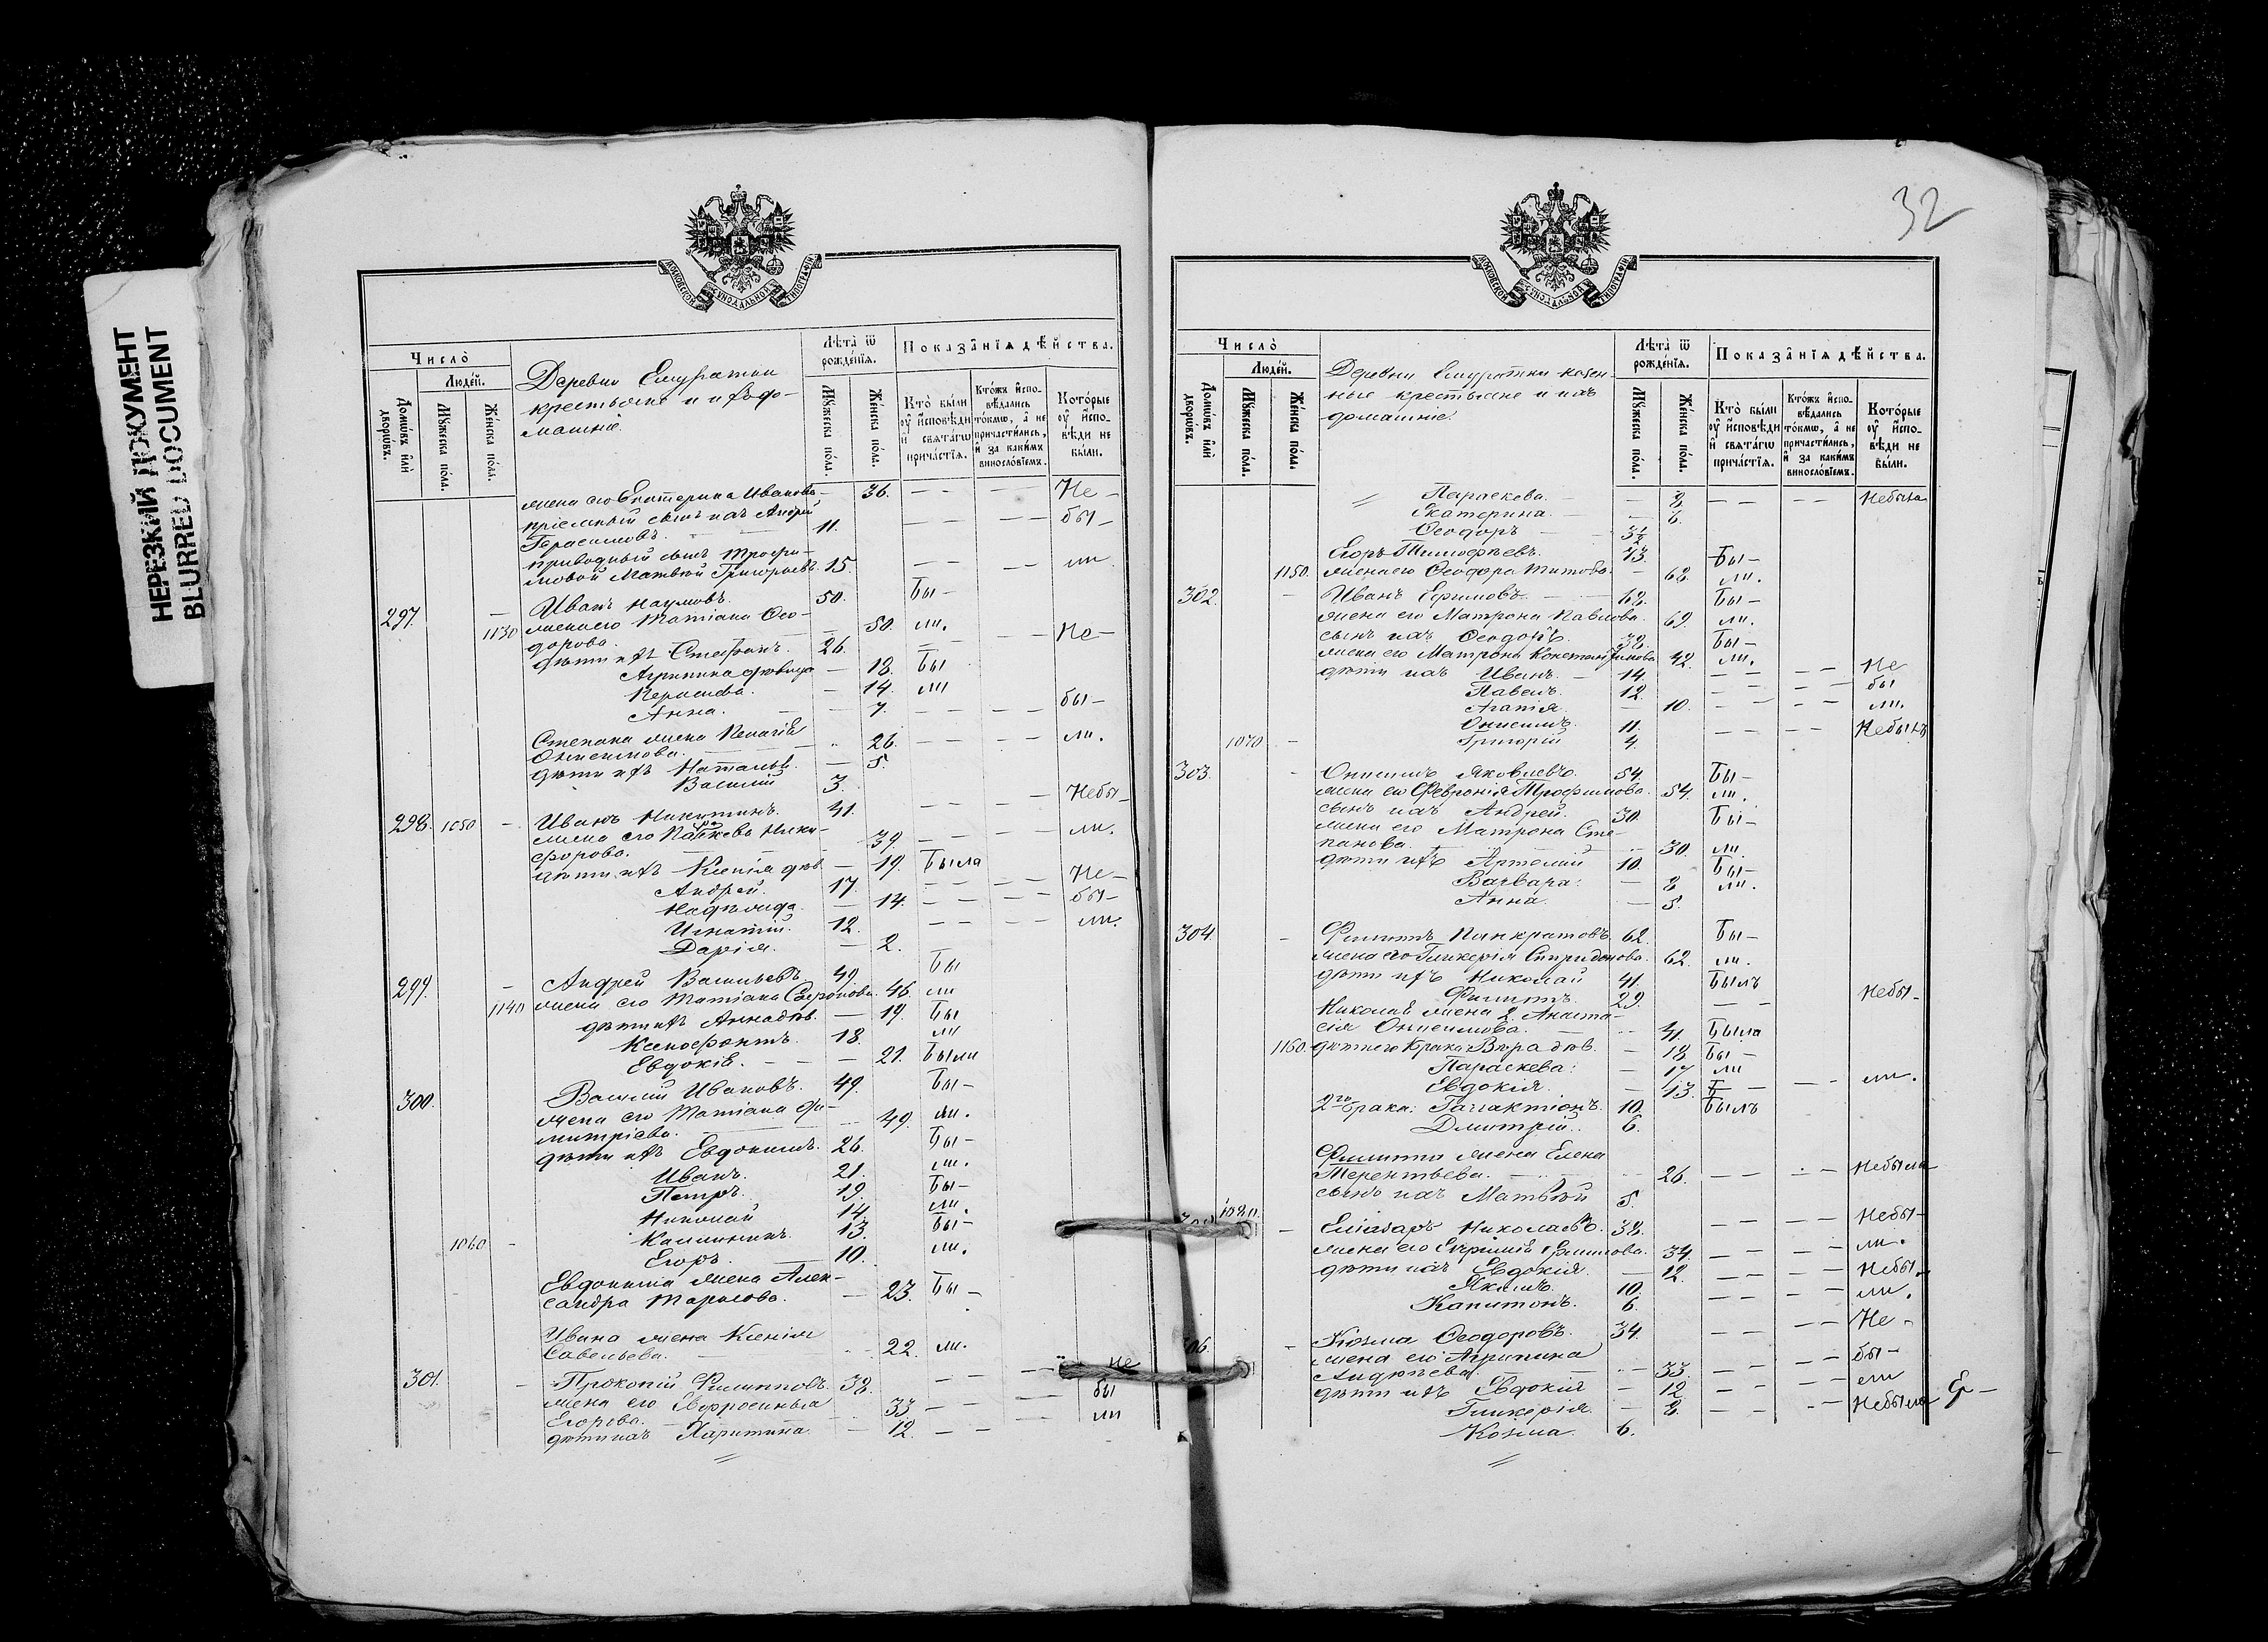 НЕРЕЗКИЙ ДОКУМЕНТ
BLURRED DOCUMENT
Число̀
Людей.
Домѡвъ или дворѡвъ.
Мꙋжеска пола.
Женска пола.
крестьяне и и
машніе.
Лѣта ѿ рожденїѧ.
Мꙋжеска пола.
Женска пола.
Показанїѧ дѣйства.
Кто были оу исповѣди и свѧтагѡ причастїѧ.
Ктожъ исповѣдались токмѡ, а не причастились, и за какимъ винословїемъ.
Которые оу исповѣди не были.
жена его Екатерина Иванова – 36. – – – – Не –
пріемный сынъ ихъ Андрей
Герасимовъ. 11. – – – – бы –
приводный сынъ Трофи-
мовой Матвѣй Григорьевъ. 15. – – – – ли.
297. – Иванъ Наумовъ. 50. Бы –
1130 жена его Татіана Ѳео-
дорова. – 50. ли.
дѣти ихъ Стефанъ. 26. – – Не –
Агрипина дѣвица – 18. Бы
– 14. ли
Анна. – 7. – – – – бы –
Степана жена Пелагія
Онисимова. 26. – – – – ли.
дѣти ихъ Наталья. – 5.
Василій 3.
298. 1050 – Иванъ Никитинъ. 41. – – – – Небы –
жена его Ники-
форова. 39. – – – – ли.
дѣти ихъ Ксенія дѣв. – 19. Была
Андрей. 17. – – – – Не –
Надежда. – 14. – – – – бы –
Игнатій. 12. – – – – ли.
Дарія. – 2.
299. – Андрей Васильевъ. 49. Бы
1140 жена его Татіана Сафронова. 46. ли
дѣти ихъ Анна дѣв. – 19. Бы
Ксенофонтъ. 18. ли
Евдокія. – – – 21. Были
300. Василій Ивановъ. 49. Бы –
жена его Татіана Ди-
митріева. 49. ли.
дѣти ихъ Евдокимъ. 26. Бы –
Иванъ. 21. ли.
Петръ. 19. Бы –
Николай 14. ли.
Каллиникъ. 13. Бы –
1060 – Егоръ. – 10. ли.
Евдокима жена Алек-
сандра Тарасова. – 23. Бы –
Ивана жена Ксенія
Савельева. 22. ли.
301. – Прокопій Филипповъ. 38. – – – – не
жена его Евфросинья
Егорова. 33. – – – – бы
дѣти ихъ Харитина. – 12. – – ли
32
Число̀
Людей.
Домѡвъ или дворѡвъ.
Мꙋжеска пола.
Женска пола.
Деревни казен-
ные крестьяне и ихъ
домашніе.
Лѣта ѿ рожденїѧ.
Мꙋжеска пола.
Женска пола.
Показанїѧ дѣйства.
Кто были оу исповѣди и свѧтагѡ причастїѧ.
Ктожъ исповѣдались токмѡ, а не причастились, и за какимъ винословїемъ.
Которые оу исповѣди не были.
Параскева. – 8. – – – – Небыла
Екатерина. – – 6.
Ѳеодоръ – – 3½
Егоръ Тимофѣевъ. 73. Бы –
1150. жена его Ѳеодора Титова. – 68. ли.
302. – Иванъ Ефимовъ. – 68. Бы –
жена его Матрона Павлова. 69. ли.
сынъ ихъ Ѳеодоръ. 38. Бы –
жена его Матрона Константинова 42. ли.
дѣти ихъ Иванъ. – 14. – – – – Не
Павелъ. 12. – – – бы
Агапія. – 10. – – – ли.
Онисимъ. 11. – – – – Небылъ
1070 – Григорій 4.
303. – Онисимъ Яковлевъ. 54. Бы –
жена его Февронія Трофимова. 54. ли.
сынъ ихъ Андрей. 30. Бы –
жена его Матрона Сте-
панова. 30. ли.
дѣти ихъ Артемій 10. Бы –
Варвара. – 8. ли.
Анна. – 5.
304. – Филиппъ Панкратовъ. 62. Бы –
жена его Гликерія Спиридонова. 62. ли.
дѣти ихъ Николай 41. Былъ
Филиппъ. 29. – – Небы –
Николая жена 2. Анаста-
сія Онисимова. 41. Была
1160. дѣти его брака: Вѣра дѣв. – 18. Бы –
Параскева: – 17. ли
Евдокія. – 13. Б – – – ли.
2го брака: Галактіонъ. 10. Былъ
Дмитрій. 6.
Филиппа жена Елена
Терентьева. – 26. – – – Небыла
сынъ ихъ Матвѣй 5.
1080. – Елиазаръ Николаевъ. 38. – – – – Небы –
жена его Ефимова. 34. – – – – ли.
дѣти ихъ Евдокія. – 12. – – – – Небы
Якимъ. 10. – – – – ли.
Капитонъ. 6.
– Козма Ѳеодоровъ. 34. – – – – Не –
жена его Агрипина
Андреева. 33. – – – – бы –
дѣти ихъ Евдокія – 12. – – – – ли
Гликерія. – 8. – – – Небыла
Козма. 6.